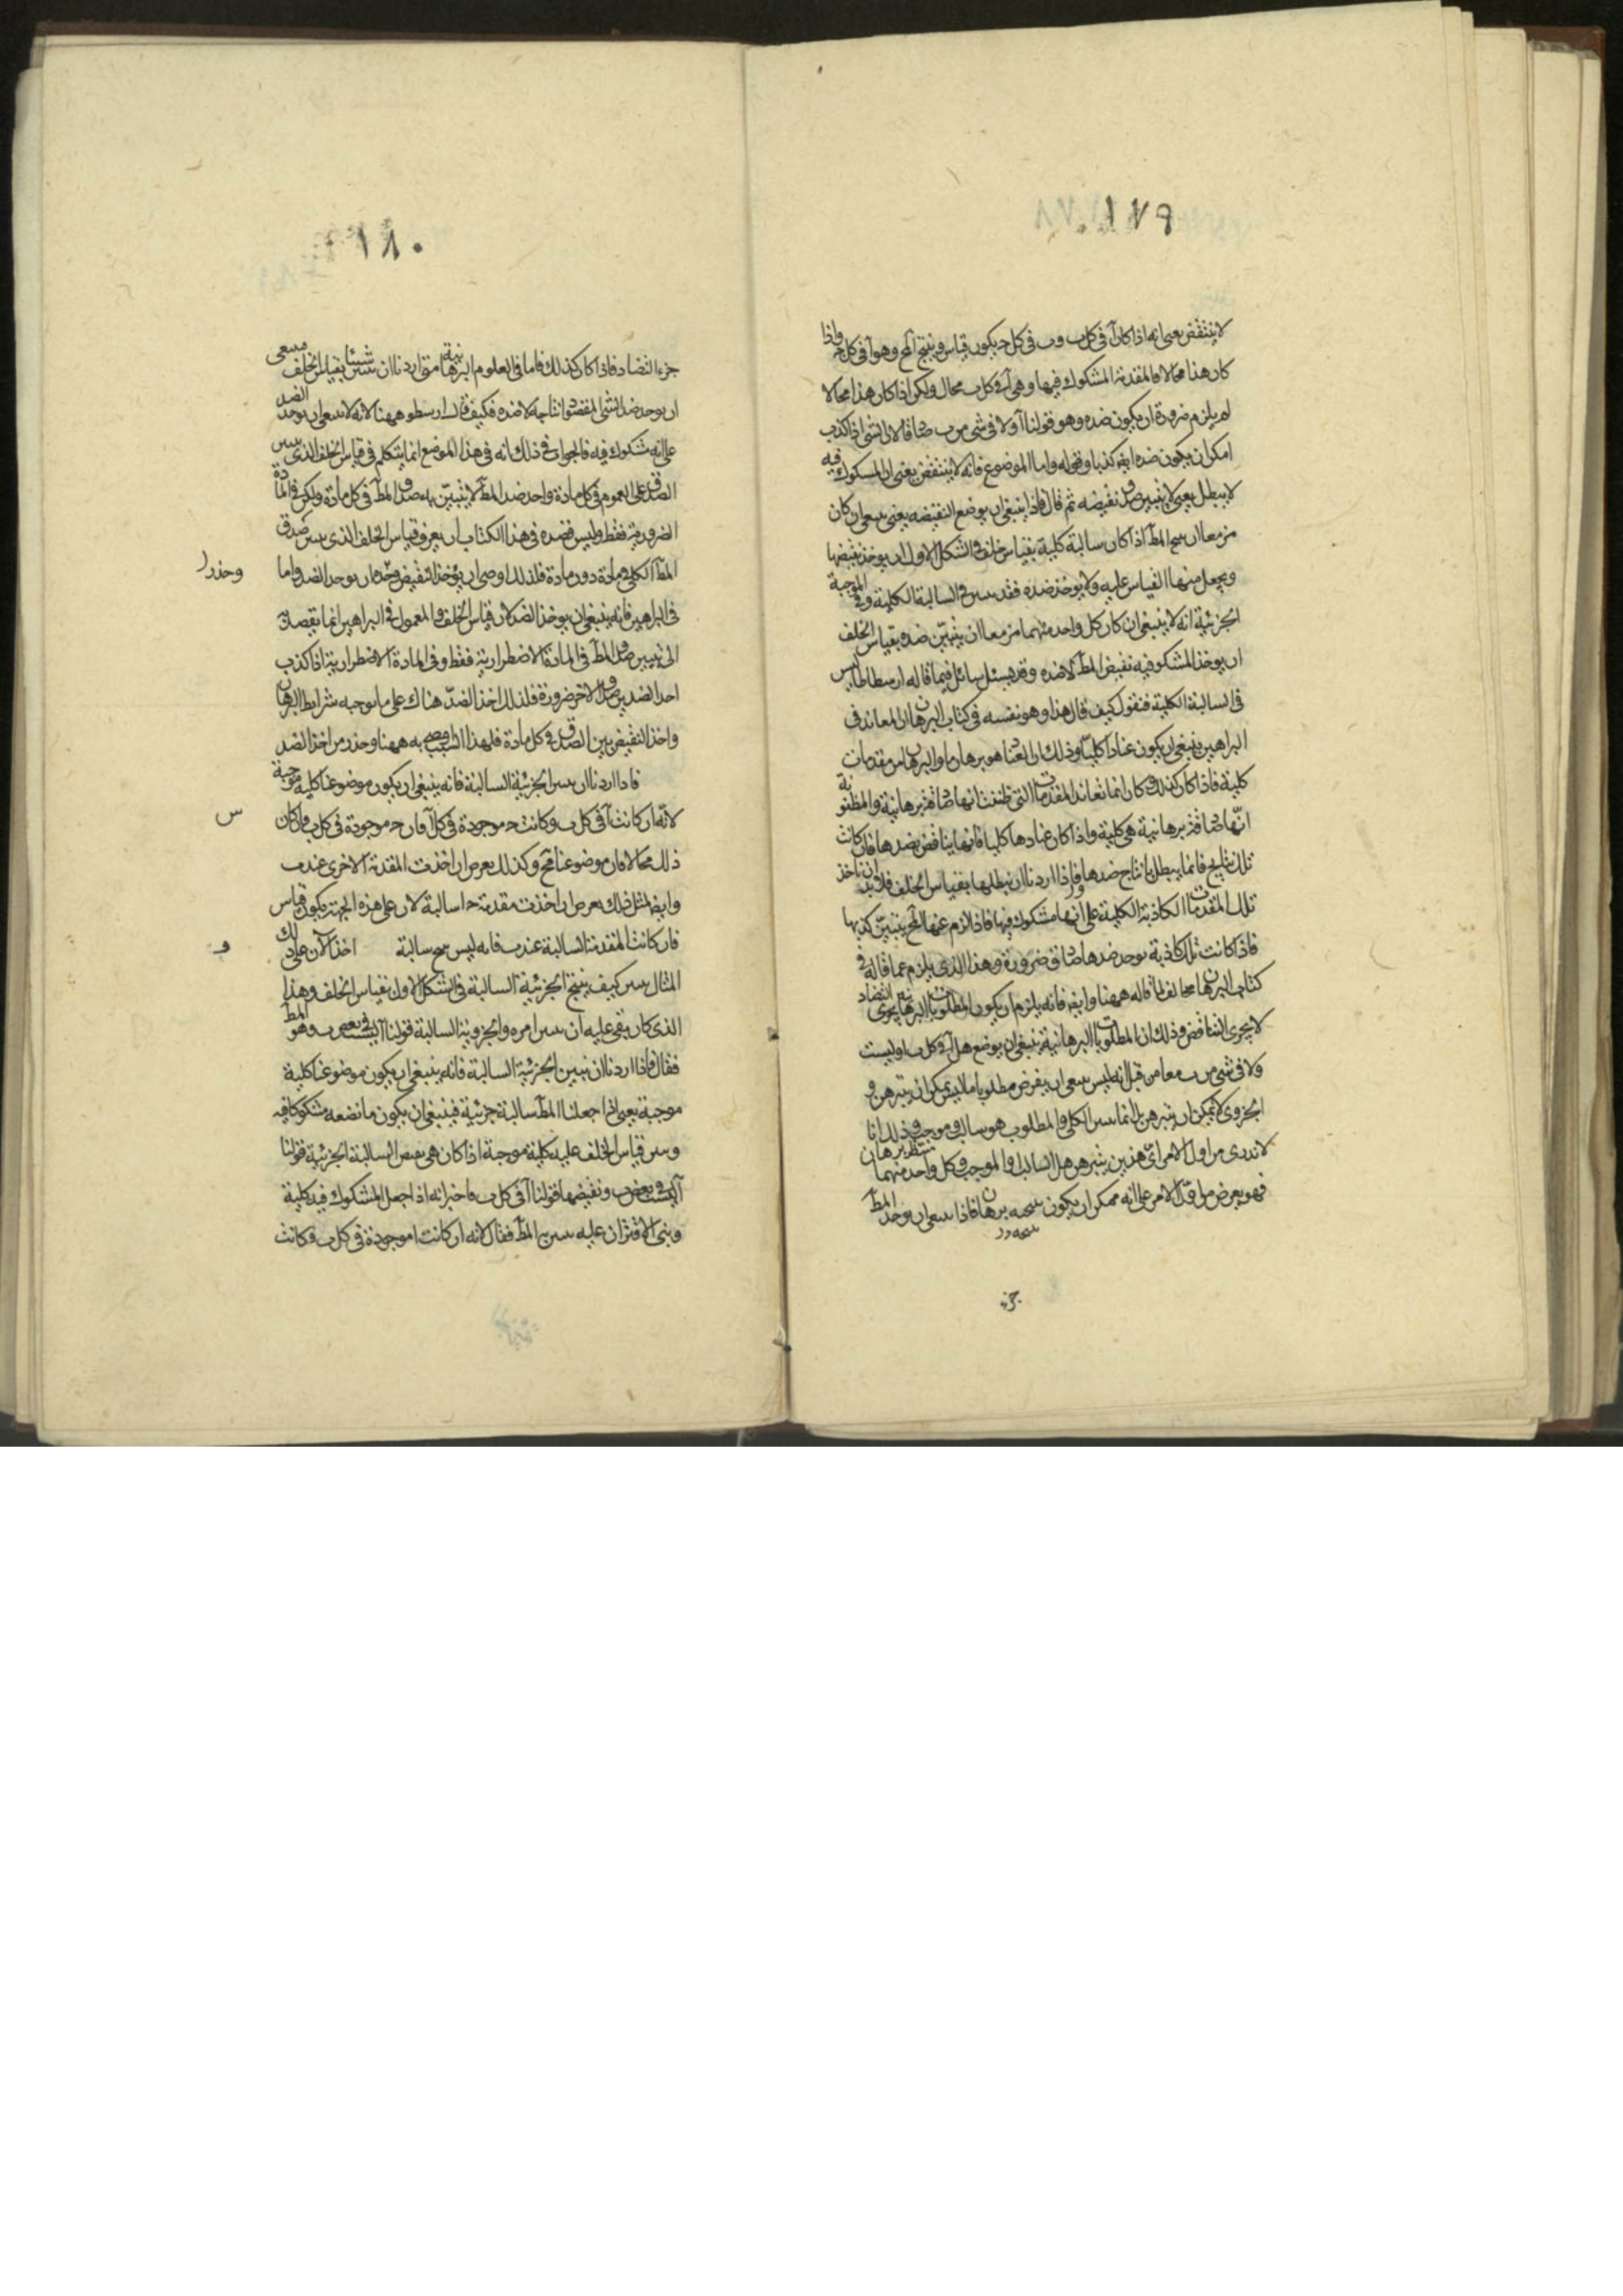 ١٧٩
لا ينتقض يعنى انه اذا كان آ فى كل ب وب فى كل ح يكون قياس وينتج المح وهو آ فى كل ح واذا
كان هذا محالا فالمقدمة المشكوك فيها وهى آ فى كل ب محال ولكن اذا كان هذا محالا
لم يلزم ضرورة ان يكون ضده وهو قولنا آ ولا فى شى من ب صادقا لان الشى اذا كذب
امكن ان يكون ضده ايضا كذبا وقوله واما الموضوع فانه لا ينتقض يعنى ان المسكوك فيه
لا يبطل يعنى لا يتبين صدق نقيضه ثم قال فاذا ينبغى ان يوضع النقيضه يعنى سعى ان كان
مزمعا ان المط اذا كان سالبة كلية بقياس خلف فى الشكل الاول ان يوخذ نقيضها
ويجعل منها القياس عليه ولا يوخذ ضده فقد سن فى السالبة الكلية وفى الموجبة
الجزئية انه لا ينبغى ان كان كل واحد منهما مزمعا ان يتبين ضده بقياس الخلف
ان يوخذ المشكو فيه نقيض المط لا ضده وقد يسئل سائل فيما قاله ارسطاطاليس
فى السالبة الكلية فنقول كيف قال هذا وهو نفسه فى كتاب البرهان ان المعاند فى
البراهين ينبغى ان يكون عنادا كليا وذلك ان العناد هو برهان ما والبرهان من مقدمات
كلية فاذا كان كذلك وكان انما تعاند المقدمات التى ظننت انها صادقة برهانية والمظنونة
انها صادقة برهانية هى كلية واذا كان عنادها كليا فانها يناقض بضدها فان كانت
تلك نتايج فانما يبطل بانتاج ضدها واذا اردنا ان نبطلها بقياس الخلف فلا بد وان ناخذ
تلك المقدمات الكاذبة الكلية على انها مشكوك فيها فاذا لزم عنها المح يتبين كذبها
فاذا كانت تلك كاذبة يوحد ضدها صادق ضرورة وهذا الذى يلزم عما قاله فى
كتاب البرهان مخالف لما قاله ههنا وايضا فانه يلزم ان يكون المطلوبات البرهانية يحوى التضاد
لا يحوى التناقض وذلك ان المطلوبات البرهانية ينبغى ان يوضع هل آ فى كل ب او ليست
ولا فى شى من ب معا من قبل انه ليس سعى ان يفرض مطلوبا ما ليس يمكن ان يتبرهن و
الجزوى لا يمكن ان يتبرهن بل انما سن الكلى والمطلوب هو سالب وموجب وذلك انا
لا ندرى من اول الامر اى هذين يتبرهن هل السالب او الموجب وكل واحد منهما منتظر برهان
فهو يعرض من اول الامر على انه ممكن ان يكون برهان فاذا سعى ان يوخذ المط
جزء
١٨٠
جزء التضاد فاذا كان كذلك فاما فى العلوم البرهانية متى اردنا ان شيئا بقياس الخلف فينبغى
ان يوحد ضد الشى المقصود انتاجه لا ضده فكيف قال ارسطو ههنا لانه لا سعى ان يوخذ الضد
على انه مشكوك فيه فالجواب فى ذلك انه فى هذا الموضع انما يتكلم فى قياس الخلف الذى سن
الصدق على العموم فى كل مادة واحد ضد المط لا يتبين به صدق المط فى كل مادة ولكن فى المادة
الضرورية فقط وليس قصده فى هذا الكتاب ان يعرف قياس الخلف الذى سن صدق
المط الكلى فى مادة دون مادة فلذلك اوصى ان يؤخذ النقيض وحذر ان يوحد الضد واما
وحذر
فى البراهين فانه ينبغى ان يوخذ الضد لان قياس الخلف المعمول فى البراهين انما يقصد به
الى تبيين صدق المط فى المادة الاضطرارية فقط وفى المادة الاضطرارية اذا كذب
احد الضدين صدق الاخر ضرورة فلذلك اخذ الضد هناك على ما توجبه شرايط البرهان
واخذ النقيض يبين الصدق فى كل مادة فلهذا السبب اوصى به ههنا وحذر من اخذ الضد
فاذا اردنا ان سن الجزئية السالبة فانه ينبغى ان يكون موضوعنا كلية موجبة
س
لانه ان كانت آ فى كل ب وكانت ح موجودة فى كل آ فان ح موجودة فى كل ب فان كان
ذلك محالا فان موضوعنا مح وكذلك يعرض ان اخذت المقدمة الاخرى عند ب
وايضا مثل ذلك يعرض ان اخذت مقدمة ح ا سالبة لان على هذه الجهة يكون قياس
فان كانت المقدمة السالبة عند ب فانه ليس سالبة اخذ الان على ذلك
و
المثال سن كيف ينتج الجزئية السالبة فى الشكل الاول بقياس الخلف وهذا
الذى كان بقى عليه ان سن امره والجزوية السالبة قولنا آ ليست فى بعض ب وهو المط
فقال فاذا اردنا ان نبين الجزئية السالبة فانه ينبغى ان يكون موضوعنا كلية
موجبة يعنى اذا جعلنا المط سالبة جزئية فينبغى ان يكون ما نضعه مشكوكا فيه
وسن قياس الخلف عليه كلية موجبة اذا كان هى نقيض السالبة الجزئية قولنا
آ ليست فى بعض ب ونقيضها قولنا آ فى كل ب فاخبر انه اذا جعل المشكوك فيه كلية
وبنى الاقتران عليه سن به المط فقال لانه ان كانت ا موجودة فى كل ب وكانت